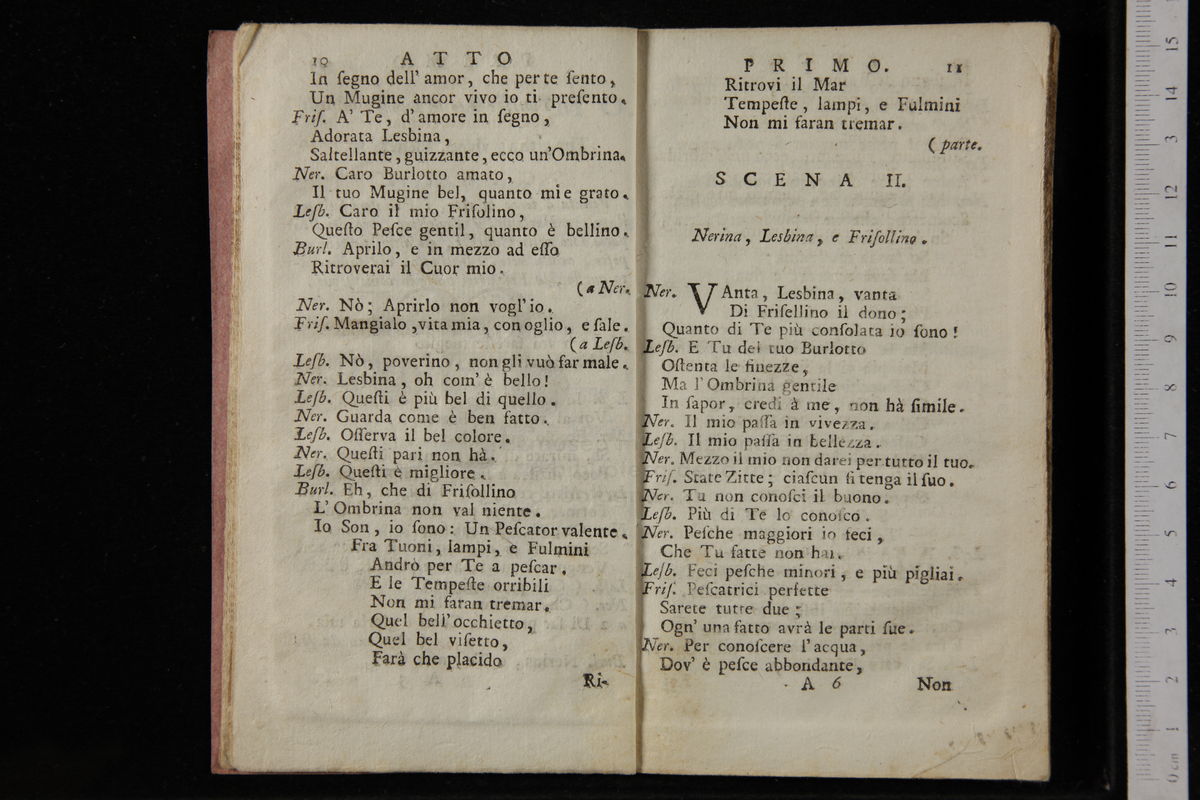 10 ATTO
In ſegno dell' amor, che per te ſento,
Un Mugine ancor vivo io ti preſento.
Friſ. A' Te, d'amore in ſegno,
Adorata Lesbina,
Saltellante, guizzante, ecco un'Ombrina.
Ner. Caro Burlotto amato,
Il tuo Mugine bel, quanto mi e grato.
Leſb. Caro il mio Friſolino,
Queſto Peſce gentil, quanto è bellino.
Burl. Aprilo, e in mezzo ad eſſo
Ritroverai il Cuor mio.
(a Ner.
Ner. Nò; Aprirlo non vogl'io.
Friſ. Mangialo, vita mia, con oglio, e ſale.
(a Leſb.
Leſb. Nò, poverino, non gli vuò far male.
Ner. Lesbina, oh com' è bello!
Leſb. Queſti è più bel di quello.
Ner. Guarda come è ben fatto.
Leſb. Oſſerva il bel colore.
Ner. Queſti pari non hà.
Leſb. Queſti è migliore.
Burl. Eh, che di Friſollino
L'Ombrina non val niente.
Io Son, io ſono: Un Peſcator valente.
Fra Tuoni, lampi, e Fulmini
Andrò per Te a peſcar.
E le Tempeſte orribili
Non mi faran tremar.
Quel bell'occhietto,
Quel bel viſetto,
Farà che placido
Ri-
PRIMO. 11
Ritrovi il Mar
Tempeſte, lampi, e Fulmini
Non mi faran tremar.
(parte.
SCENA II.
Nerina, Lesbina, e Friſollino.
Ner. VAnta, Lesbina, vanta
Di Friſellino il dono;
Quanto di Te più conſolata io ſono!
Leſb. E Tu del tuo Burlotto
Oſtenta le finezze,
Ma l'Ombrina gentile
In ſapor, credi à me, non hà ſimile.
Ner. Il mio paſſa in vivezza.
Leſb. Il mio paſſa in bellezza.
Ner. Mezzo il mio non darei per tutto il tuo.
Friſ. State Zitte; ciaſcun ſi tenga il ſuo.
Ner. Tu non conoſci il buono.
Leſb. Più di Te lo conoſco.
Ner. Peſche maggiori io feci,
Che Tu fatte non hai.
Leſb. Feci peſche minori, e più pigliai.
Friſ. Peſcatrici perfette
Sarete tutte due;
Ogn' una fatto avrà le parti ſue.
Ner. Per conoſcere l'acqua,
Dov' è peſce abbondante,
A 6 Non